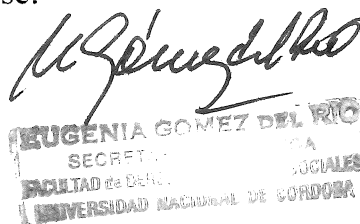 se.
M Gómez del Río
EUGENIA GOMEZ DEL RIO
SECRET
FACULTAD de DERE SOCIALES
UNIVERSIDAD NACIONAL DE CORDOBA